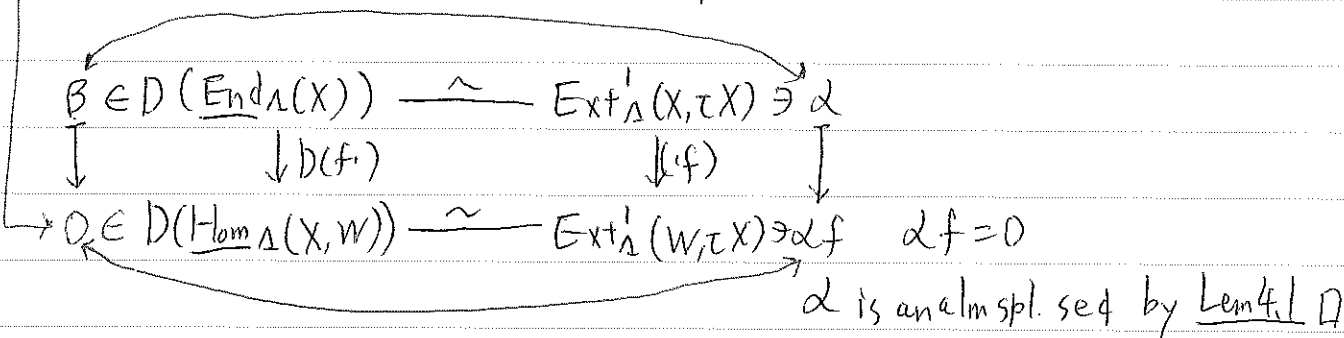 β ∈ D(E̲n̲d̲Λ(X)) ~ Ext¹Λ(X,τX) ∋ α
↓ ↓D(f·) ↓(·f) ↓
0 ∈ D(H̲o̲m̲Λ(X,W)) ~ Ext¹Λ(W,τX) ∋ αf αf=0
α is an alm spl. seq by Lem 4.1 □